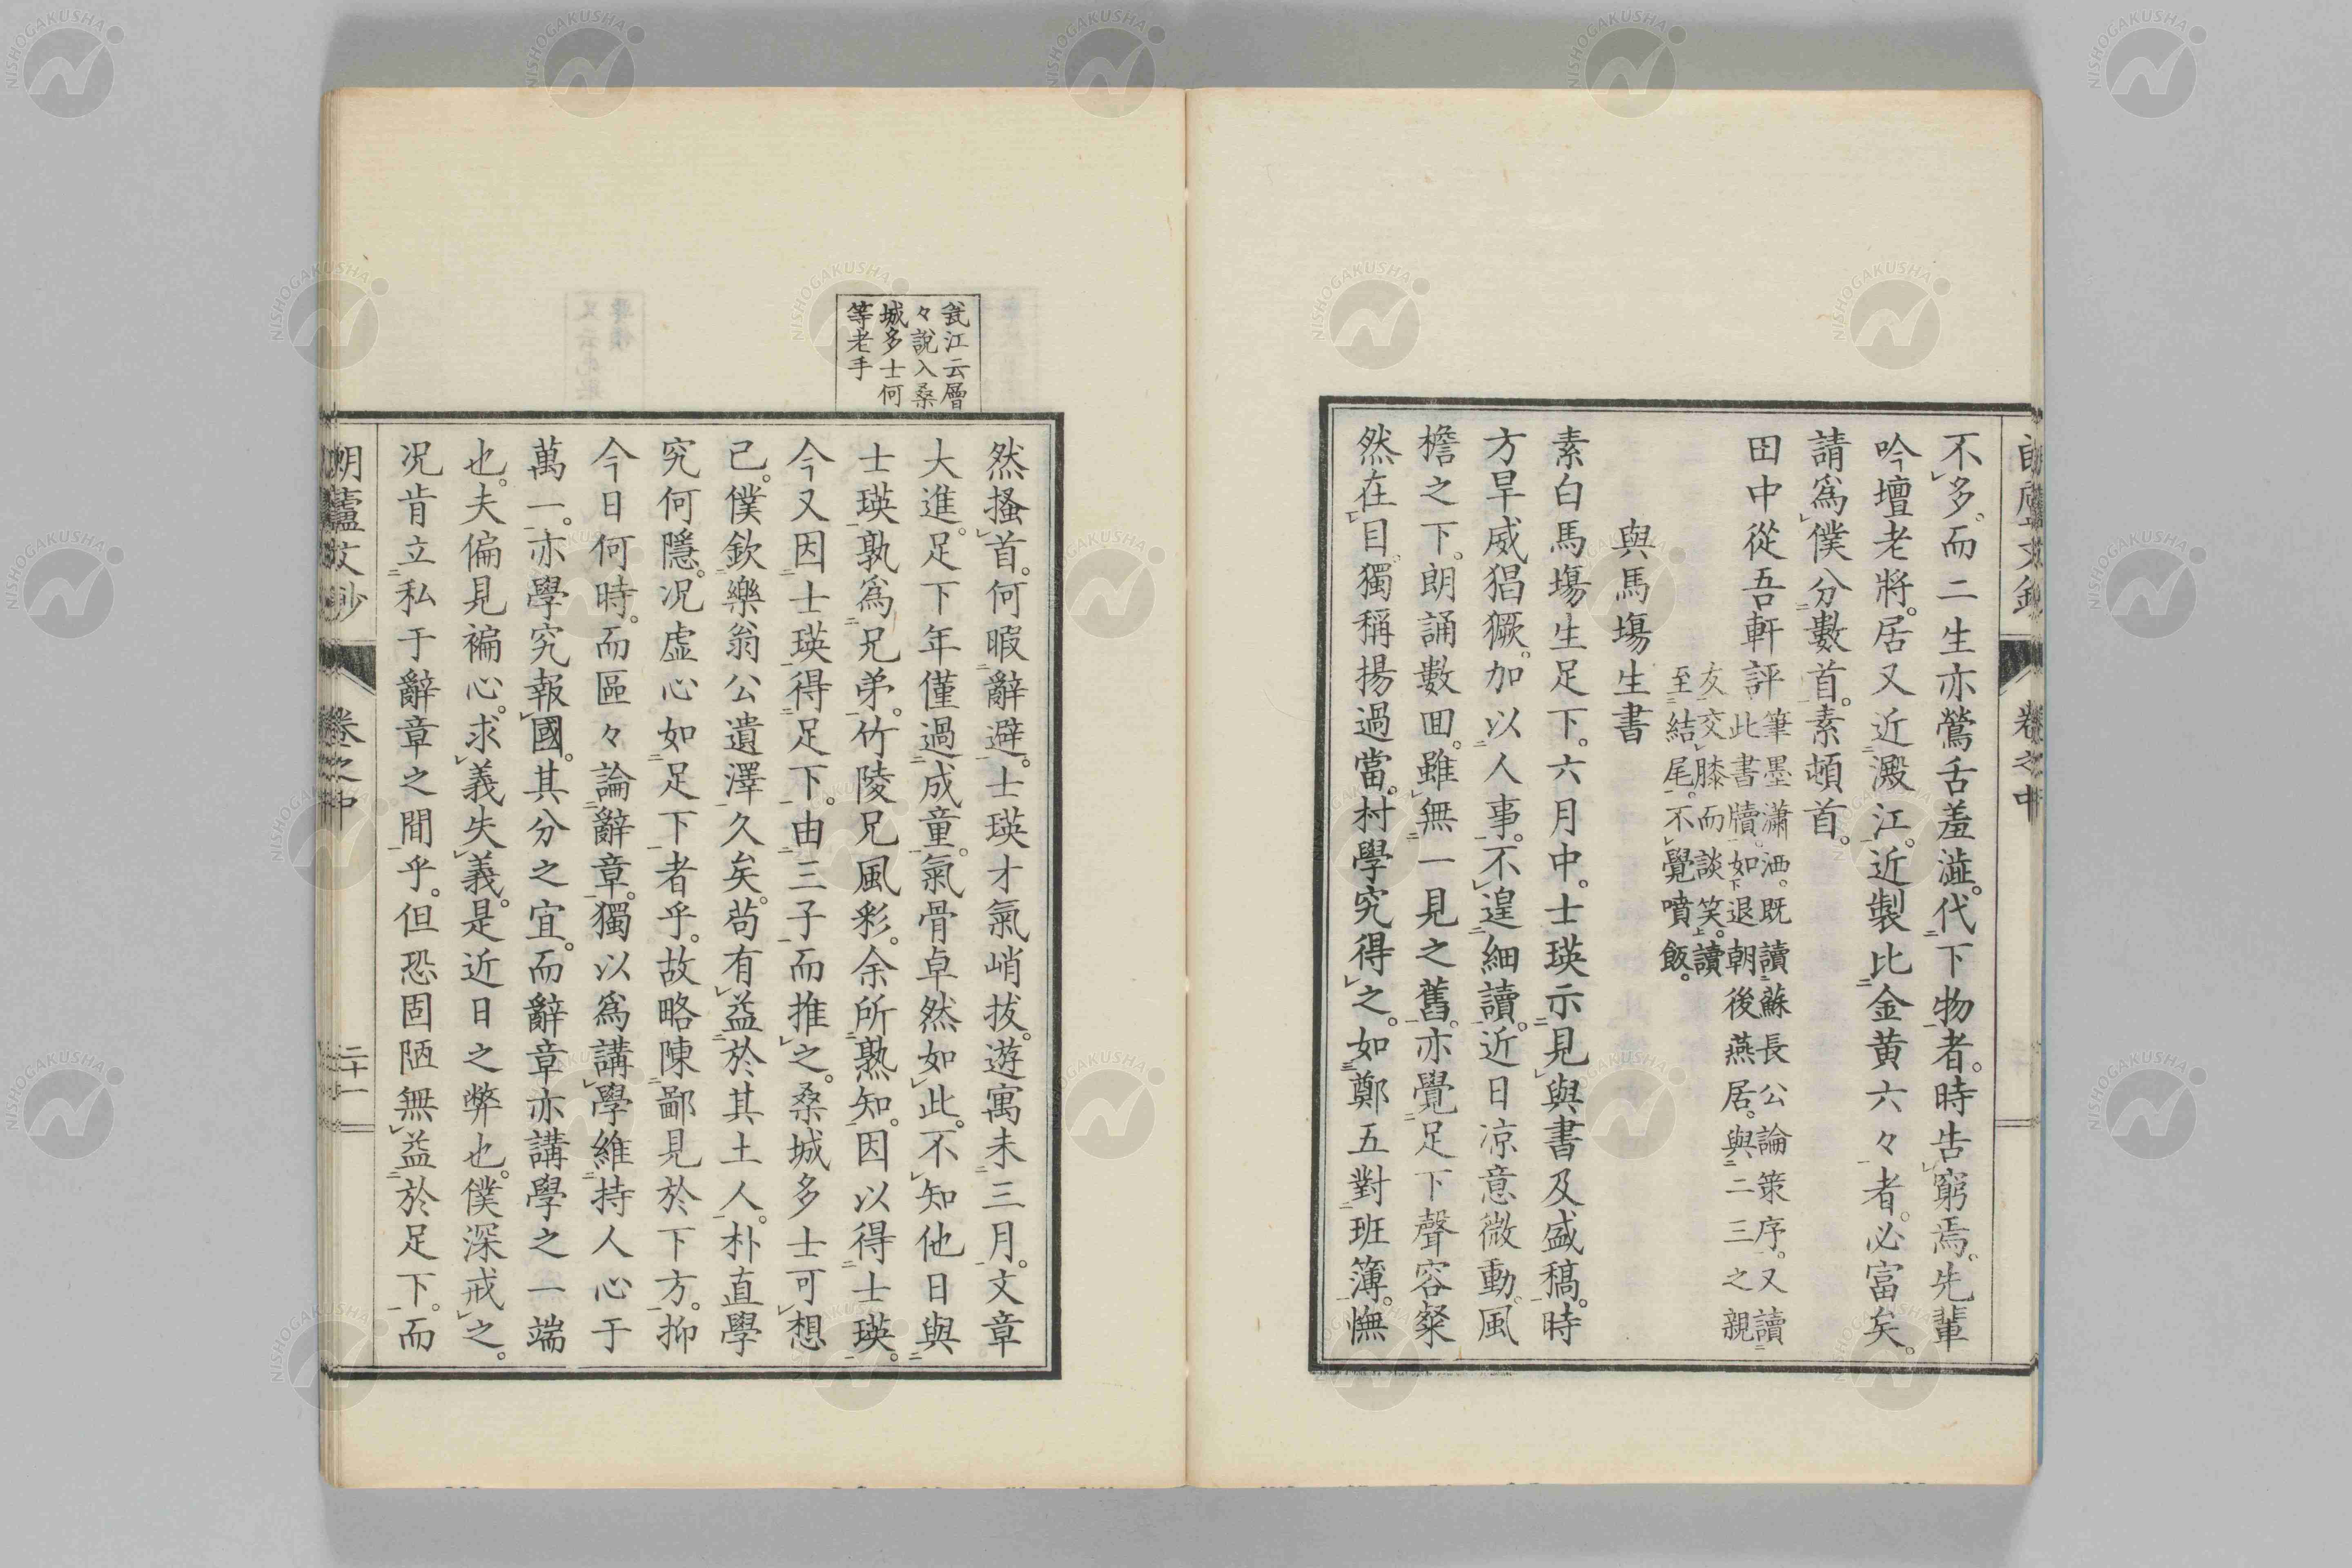 朗廬文鈔 卷之中
不多。而二生亦鶯舌羞澁。代下物者。時告窮焉。先輩
吟壇老將。居又近澱江。近製比金黄六々者。必富矣。
請爲僕分數首。素頓首。
田中從吾軒評 筆墨瀟洒。既讀蘇長公論策序。又讀
此書牘。如退朝後燕居。與二三之親
友交膝而談笑。讀
至結尾。不覺噴飯。
與馬塲生書
素白馬塲生足下。六月中。士瑛示見與書及盛稿。時
方旱威猖獗。加以人事。不遑細讀。近日凉意微動。風
檐之下。朗誦數囬。雖無一見之舊。亦覺足下聲容粲
然在目。獨稱揚過當。村學究得之。如鄭五對班簿。憮
然搔首。何暇辭避。士瑛才氣峭拔。遊寓未三月。文章
大進。足下年僅過成童。氣骨卓然如此。不知他日與
士瑛孰爲兄弟。竹陵兄風彩。余所熟知。因以得士瑛。
今又因士瑛得足下。由三子而推之。桑城多士可想
已。僕欽樂翁公遺澤久矣。苟有益於其土人。朴直學
究何隱。况虛心如足下者乎。故略陳鄙見於下方。抑
今日何時。而區々論辭章。獨以爲講學維持人心于
萬一。亦學究報國。其分之宜。而辭章亦講學之一端
也。夫偏見褊心。求義失義。是近日之弊也。僕深戒之。
况肯立私于辭章之間乎。但恐固陋無益於足下。而
瓮江云層
々說入桑
城多士何
等老手
朗廬文鈔 卷之中 二十一